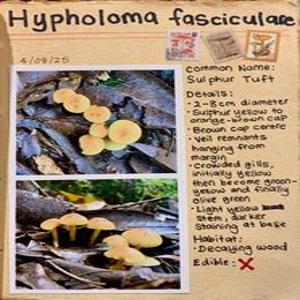 Hypholoma fasciculare
4/09/25
Common Name:
Sulphur Tuft
Details:
- 2-8cm diameter
- Sulphur yellow to
orange-brown cap
- Brown cap centre
- Veil remnants
hanging from
margin
- Crowded gills,
initially yellow
then become green-
yellow and finally
olive green
- Light yellow
Stem, darker
Staining at base
Habitat:
- Decaying wood
Edible: X